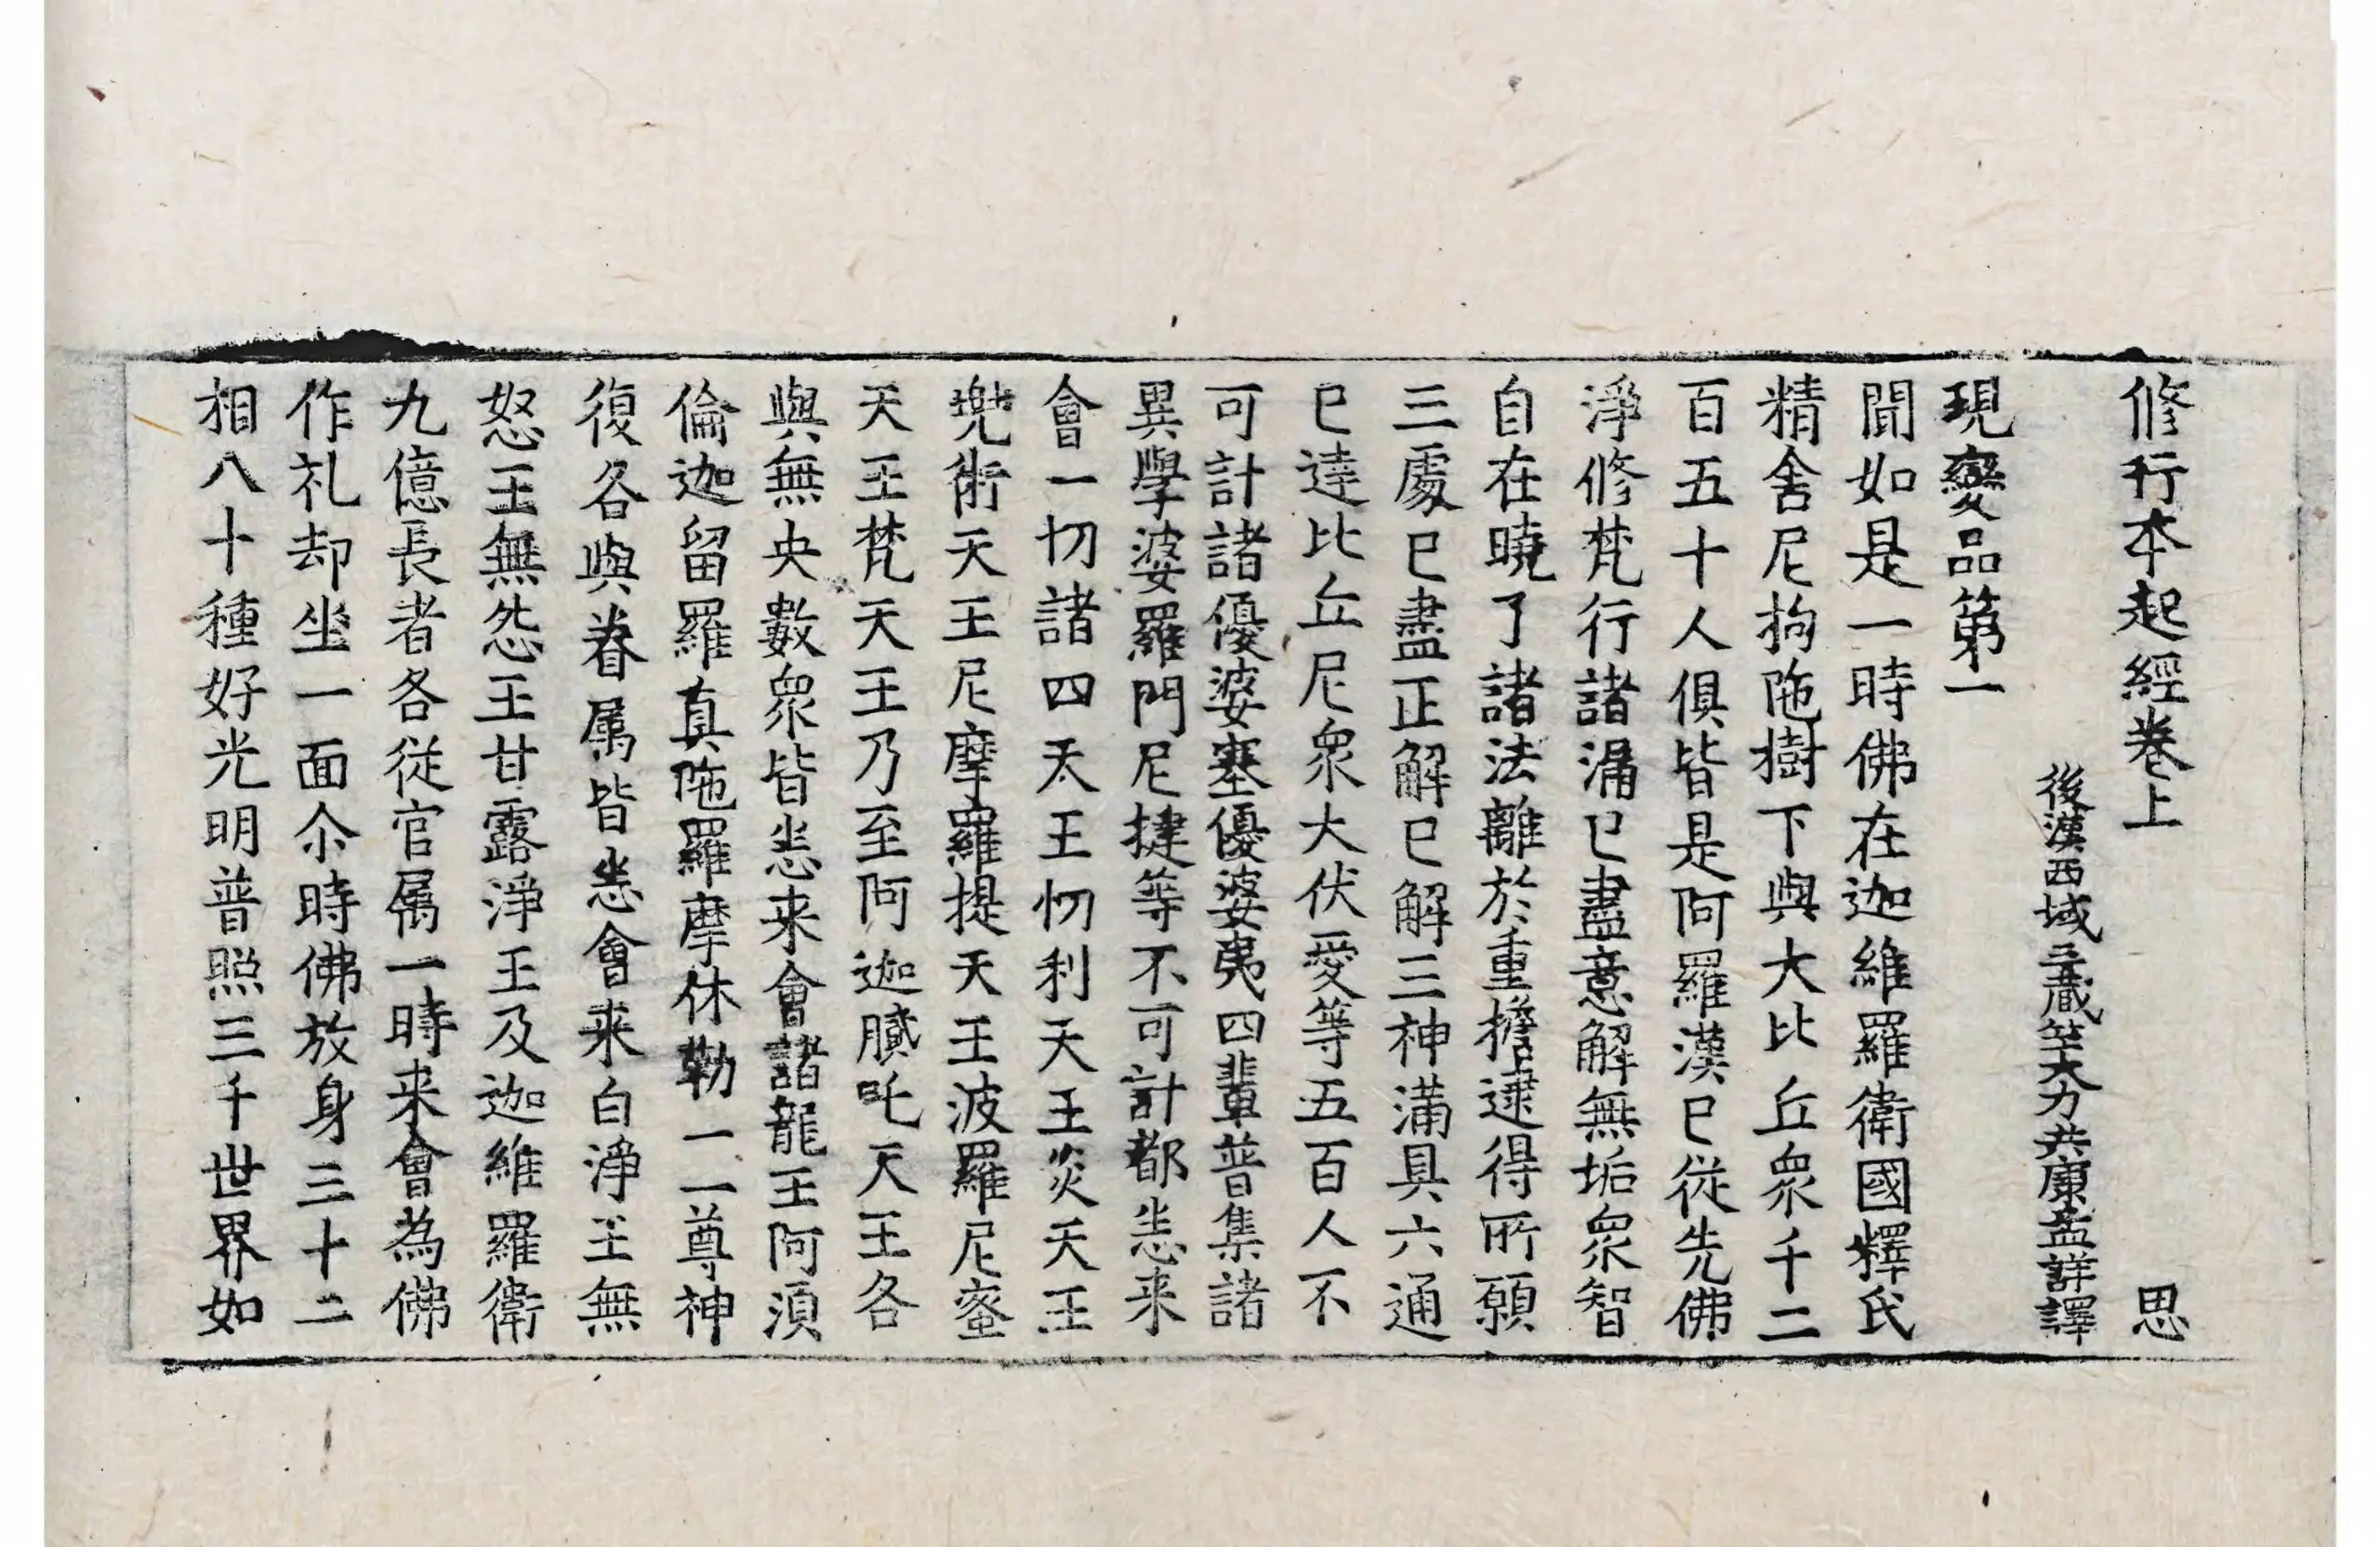 修行本起經卷上 思
後漢西域三藏竺大力共康孟詳譯
現變品第一
聞如是一時佛在迦維羅衛國釋氏
精舍尼拘陁樹下與大比丘衆千二
百五十人俱皆是阿羅漢已從先佛
淨修梵行諸漏已盡意解無垢衆智
自在曉了諸法離於重擔逮得所願
三處已盡正解已解三神滿具六通
已達比丘尼衆大伏愛等五百人不
可計諸優婆塞優婆夷四輩普集諸
異學婆羅門尼揵等不可計都悉来
會一切諸四天王忉利天王炎天王
兜術天王尼摩羅提天王波羅尼蜜
天王梵天王乃至阿迦膩吒天王各
與無央數衆皆悉来會諸龍王阿湏
倫迦留羅真陁羅摩休勒一一尊神
復各與眷属皆悉會来白淨王無
怒王無怨王甘露淨王及迦維羅衛
九億長者各従官属一時来會為佛
作礼却坐一面尒時佛放身三十二
相八十種好光明普照三千世界如